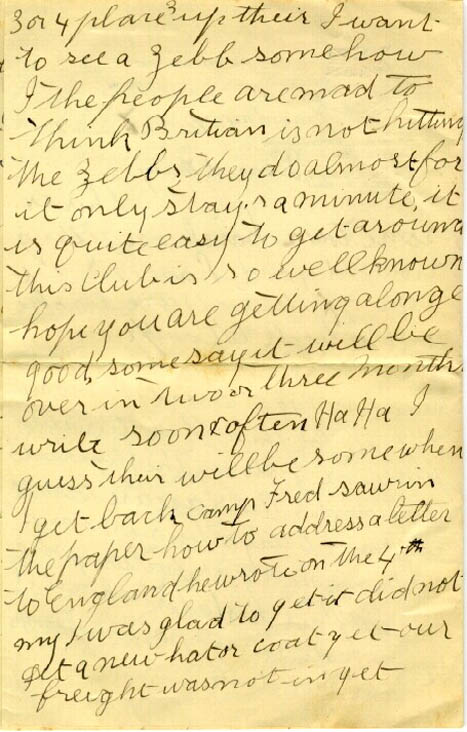 3 or 4 places up their I want
to see a Zebb somehow
I the people are mad to
think Britian is not hitting
the Zebbs they do almost for
it only stays a minute, it
is quite easy to get around
this Club is so well known
hope you are getting along
good, some say it will be
over in two or three months
write soon & often Ha Ha I
guess their will be some when
I get back camp Fred saw in
the paper how to address a letter
to England he wrote on the 4th
my I was glad to get it did not
get a new hat or coat yet our
freight was not in yet